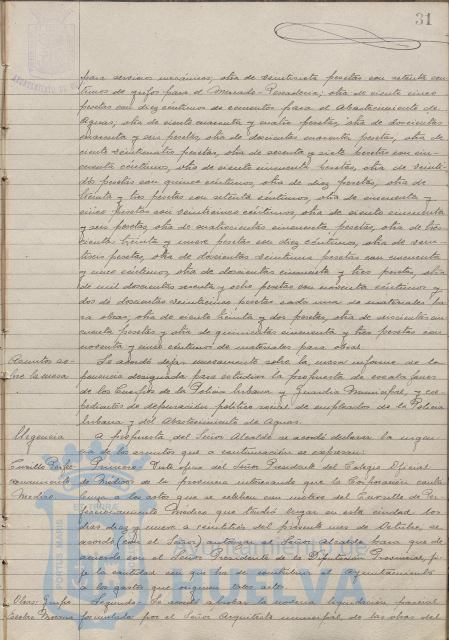 31
para servicios mecánicos; otra de veintisiete pesetas con setenta cén-
timos de grifos para el Mercado-Pescadería; otra de ciento cinco
pesetas con diez céntimos de cementos para el Abastecimiento de
Aguas; otra de ciento cincuenta y cuatro pesetas, otra de doscientas
cincuenta y seis pesetas, otra de doscientas cuarenta pesetas, otra de
ciento veinticuatro pesetas, otra de sesenta y siete pesetas con cin-
cuenta céntimos, otra de ciento cincuenta pesetas, otra de veinti-
dós pesetas con quince céntimos, otra de diez pesetas, otra de
treinta y tres pesetas con setenta céntimos, otra de cincuenta y
cinco pesetas con veinticinco céntimos, otra de ciento cincuenta
y seis pesetas, otra de cuatrocientas cincuenta pesetas, otra de tres-
cientas treinta y nueve pesetas con diez céntimos, otra de vein-
tiseis pesetas, otra de doscientas veintiuna pesetas con cincuenta
y cinco céntimos, otra de doscientas cincuenta y tres pesetas, otra
de mil doscientas sesenta y ocho pesetas con noventa céntimos y
dos de doscientas veinticinco pesetas cada una de materiales pa-
ra obras; otra de ciento treinta y dos pesetas, otra de seiscientas cin-
cuenta pesetas y otra de quinientas cincuenta y tres pesetas con
noventa y cinco céntimos de materiales para obras.
Asuntos so-
bre la mesa
Se acordó dejar nuevamente sobre la mesa informe de la
Ponencia designada para estudiar la propuesta de escala
de los Cuerpos de la Policía Urbana y Guardia Municipal, y ex-
pedientes de depuración político social de empleados de la Policía
Urbana y del Abastecimiento de Aguas.
Urgencia
A propuesta del Señor Alcalde se acordó declarar la urgen-
cia de los asuntos que a continuación se expresan:
Cursillo Perfec-
cionamiento
Medico
Primero. Visto oficio del Señor Presidente del Colegio Oficial
de Médicos de la provincia interesando que la Corporación contri-
buya a los actos que se celebren con motivo del Cursillo de Per-
feccionamiento Médico que tendrá lugar en esta ciudad los
días diez y nueve a veintitrés del presente mes de Octubre, se
acordó autorizar al Señor Alcalde para que de
acuerdo con el Señor Presidente de la Diputación Provincial, fi-
je la cantidad con que ha de contribuir el Ayuntamiento
a los gastos que originen tales actos.
Obras Grupo
Escolar Moreno
Segundo. Se acordó aprobar la novena liquidación parcial
formulada por el Señor Arquitecto municipal de las obras del
Ayuntamiento de
HUELVA
PORTUS MARIS